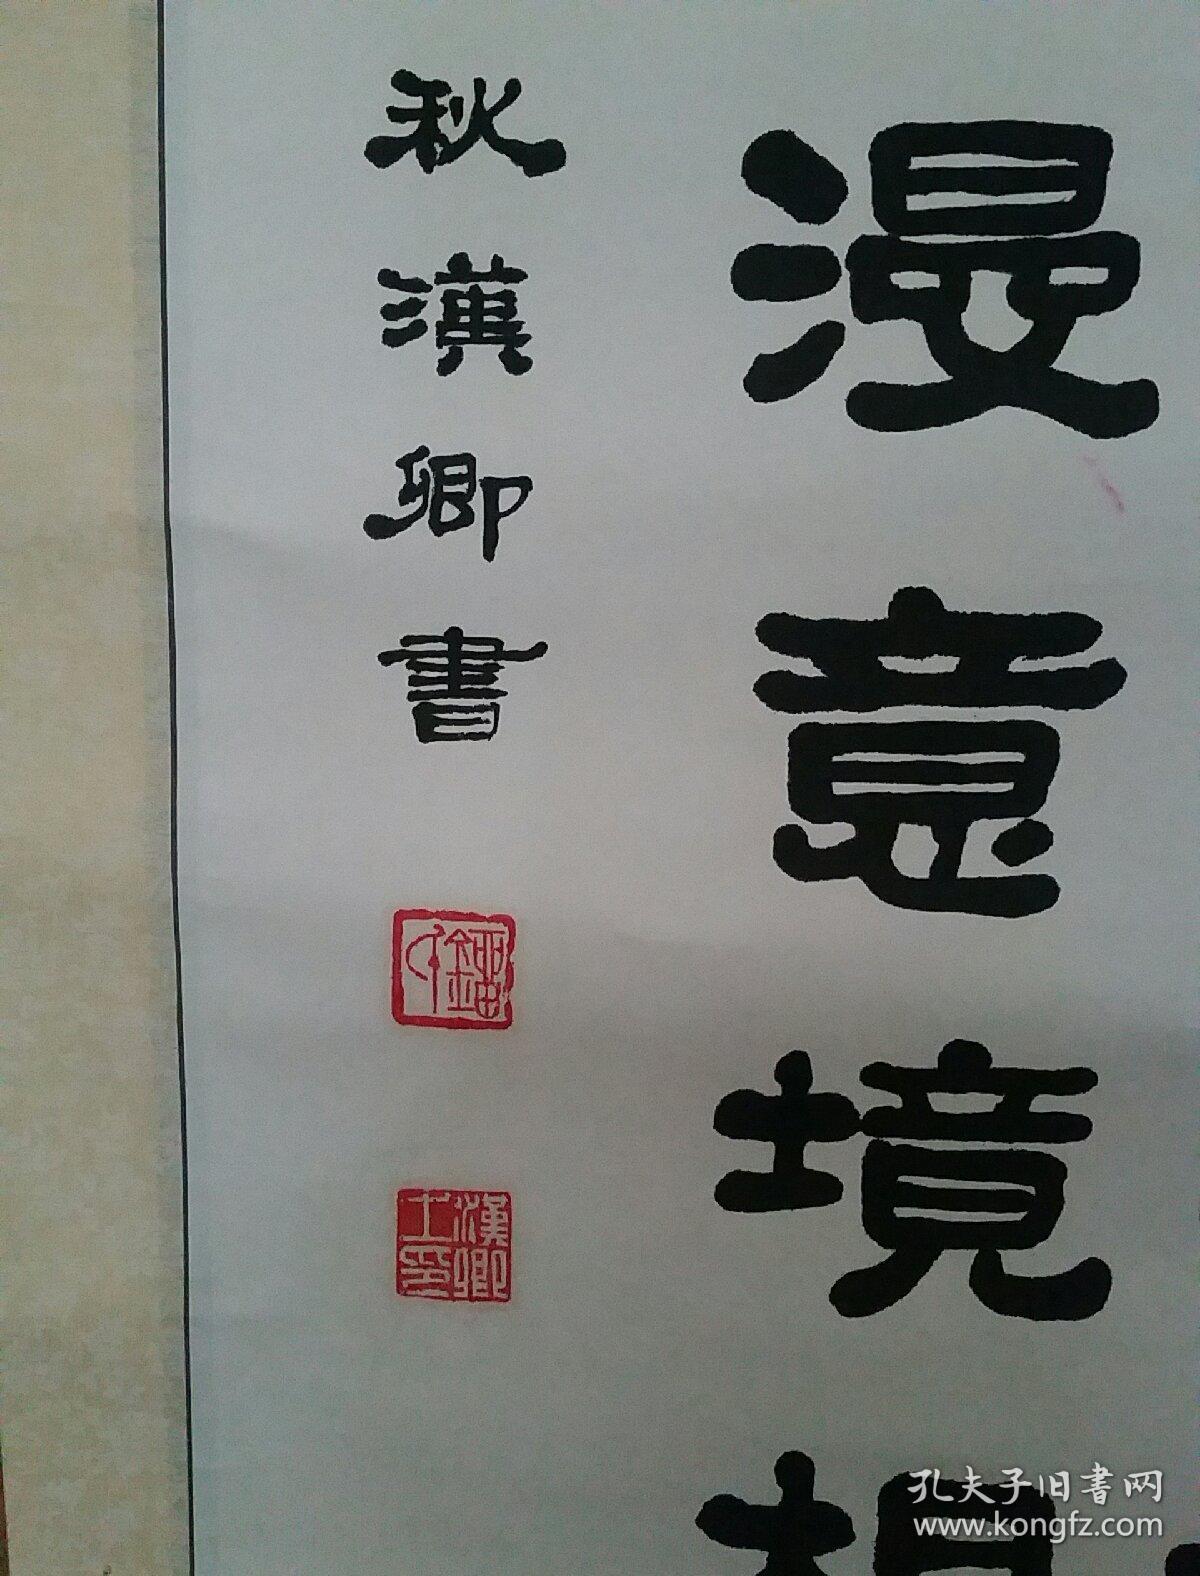 漫意境
秋漢卿書
漢卿
士印
孔夫子旧書网
www.kongfz.com